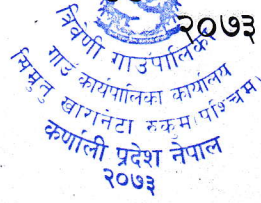 २०७३
त्रिवेणी गाउँपालिका
गाउँ कार्यपालिका कार्यालय
सिम्रुतु खारानेटा रुकुम(पश्चिम)
कर्णाली प्रदेश नेपाल
२०७३